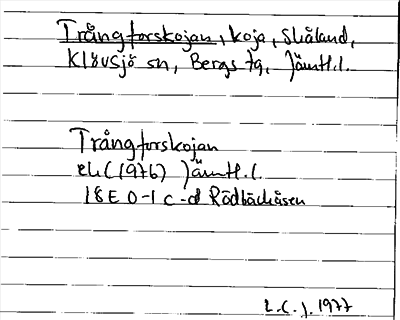 Trångforskojan, koja, Skåland,
Klövsjö sn, Bergs tg, Jämtl. l.
Trångforskojan
ek (1976) Jämtl. l.
18E 0-1 c-d Rödbäckåsen
1977